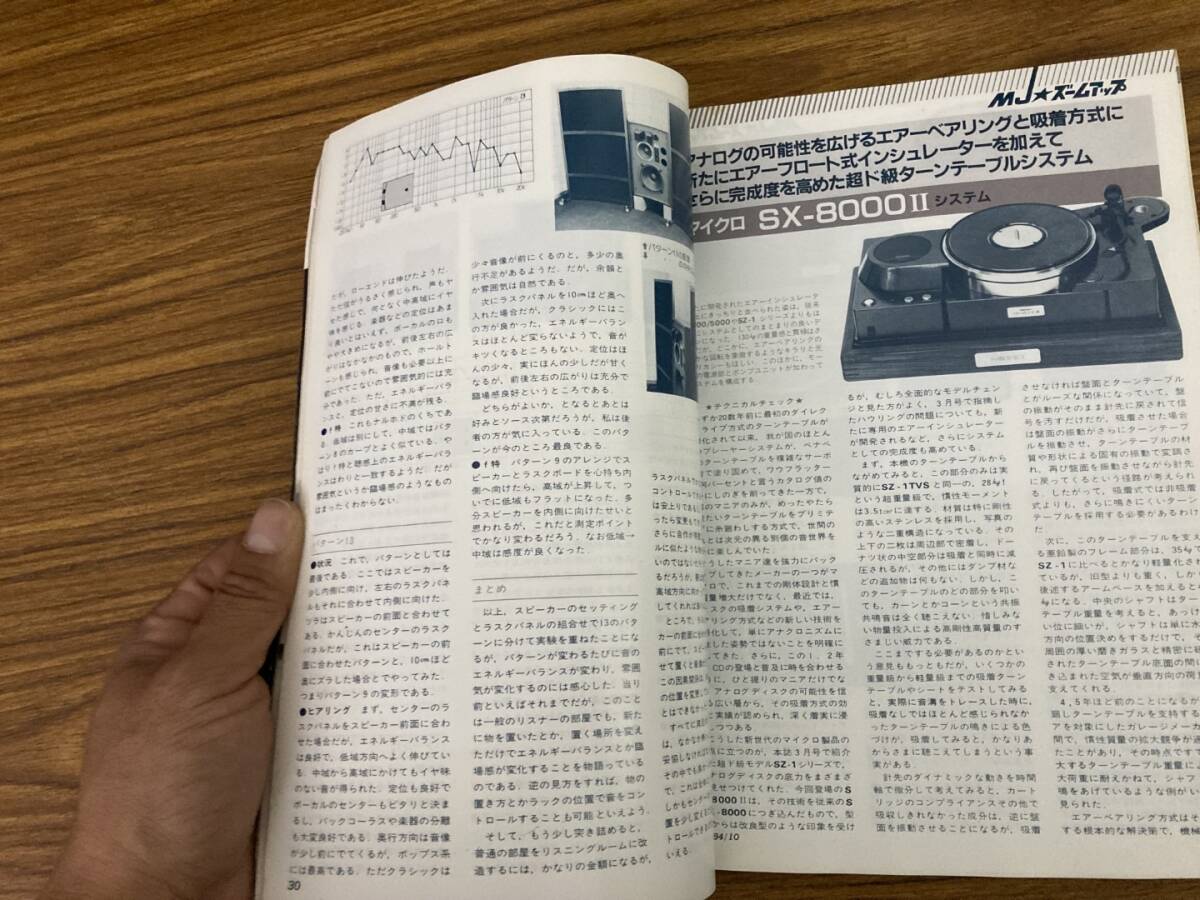 だが，ローエンドは伸びたようだ．
たた弦がうるさく感じられ，声もヤ
せた感じで，何となく中高域にイヤ
味を感じる．楽器などの定位はあま
り良いとはいえず，ボーカルの口も
やや大きめになるが，前後左右の広
がりはなかなかのもので，ホールト
ーンも感じられ，音像も必要以上に
前にでてこないので雰囲気的には充
分であった．ただ，エネルギーバラ
ンスと，定位の甘さに不満が残る．
●f特　これもナルホドのくちであ
る．低域は別にして，中域ではパタ
ーン8のカーブとよく似ている．や
はりf特と聴感上のエネルギーバラ
ンスはわりと一致するようだ．だが
雰囲気というか臨場感のようなもの
はまったくわからない．
パターン13
●状況　これで，パターンとしては
最後である．ここではスピーカーを
少し内側に向け，左右のラスクパネ
ルもそれに合わせて内側に向けた．
ツラはスピーカーの前面と合わせて
ある．かんじんのセンターのラスク
パネルだが，これはスピーカーの前
面に合わせたパターンと，10cmほど
奥にズラした場合とでやってみた．
つまりパターン9の変形である．
●ヒアリング　まず，センターのラ
スクパネルをスピーカー前面に合わ
せた場合だが，エネルギーバランス
は良好で，低域方向へよく伸びてい
る．中域から高域にかけてもイヤ味
のない音が得られた．定位も良好で
ボーカルのセンターもピタリと決ま
るし，バックコーラスや楽器の分離
も大変良好である．奥行方向は音像
が少し前にでてくるが，ポップス系
には最高である．ただクラシックは
30
少々音像が前にくるのと，多少の奥
行不足があるようだ．だが，余韻と
か雰囲気は自然である．
次にラスクパネルを10cmほど奥へ
入れた場合だが，クラシックにはこ
の方が良かった．エネルギーバラン
スはほとんど変らないようで，音が
キツくなるところもない．定位はほ
んの少々，実にほんの少しだが甘く
なるが，前後左右の広がりは充分で
臨場感良好というところである．
どちらがよいか，となるとあとは
好みとソース次第だろうが，私は後
者の方が気に入っている．このパタ
ーンが今のところ最良である．
●f特　パターン9のアレンジでスピ
ーカーとラスクボードを心持ち内
側へ向けたら，高域が上昇して，つ
いでに低域もフラットになった．多
分スピーカーを内側に向けたせいと
思われるが，これだと測定ポイント
でかなり変わるだろう．なお低域→
中域は感度が良くなった．
まとめ
以上，スピーカーのセッティング
とラスクパネルの組合せで13のパタ
ーンに分けて実験を重ねたことにな
るが，パターンが変わるたびに音の
エネルギーバランスが変わり，雰囲
気が変化するのには感心した．当り
前といえばそれまでだが，このこと
は一般のリスナーの部屋でも，新た
に物を置いたとか，置く場所を変え
ただけでエネルギーバランスとか臨
場感が変化することを物語っている
のである．逆の見方をすれば，物の
置き方とかラックの位置で音をコン
トロールすることも可能といえよう．
そして，もう少し突き詰めると，
普通の部屋をリスニングルームに改
造するには，かなりの金額になるが，
ラスクパネルで
コントロールでき
は安上りである
ったら変更もでき
いのではないだ
るだろうが，
高域方向に向
してくれれば
前にでて，スピ
せて置くと
この因果関係は
の位置を変更
とはできなかっ
すべてに満足
は，なかなか
妥協しなければ
その中でも
れて，これは
しかもセンター
置を少し変え
トロールできる
いえる．
MJ★ズームアップ
アナログの可能性を広げるエアーベアリングと吸着方式に
新たにエアーフロート式インシュレーターを加えて
さらに完成度を高めた超ド級ターンテーブルシステム
マイクロ SX-8000II システム
たに開発されたエアーインシュレータ
にきっちりと並べられた姿は，従来
00/5000やSZ-1 シリーズよりもは
ンステムとしてのまとまりの良いデ
になった．130kgの重量感と貫禄はさ
が，どこかに，エアーベアリングの
な回転を象徴するようなキラリと光
リカシーもほしい．このほかに，モー
の電源部とポンプユニットが加わって
ステムを構成する
★テクニカルチェック★
ずか20数年前に最初のダイレク
ライブ方式のターンテーブルが
化されて以来，我が国のほとん
プレーヤーシステムが，ベナベ
ターンテーブルを複雑なサーボ
で塗り固めて，ワウフラッター
パーセントと言うカタログ値の
にしのぎを削ってきた一方で，
のマニアのみが，めったやたら
たいターンテーブルをプリミテ
に糸廻わしする方式で，世間の
とは次元の異る別個の音世界を
に楽しんでいた．
うしたマニア達を強力にバック
プしてきたメーカーの一つがマ
ロで，これまでの剛体設計と慣
量増大だけでなく，最近では，
スクの吸着システムや，エアー
アリング方式などの新しい技術を
化して，単にアナクロニズムに
した姿勢ではないことを明確に
てきた．さらに，この1，2年
CDの登場と普及に時を合わせる
に，ひと握りのマニアだけでな
アナログディスクの可能性を信
広い層から，その吸着方式の効
に実績が認められ，深く着実に浸
つつある．
うした新世代のマイクロ製品の
に立つのが，本誌3月号で紹介
た超ド級モデルSZ-1シリーズで，
ナログディスクの底力をまざまざ
見せつけてくれた．今回登場のS
8000IIは，その技術を従来のS
-8000につぎ込んだもので，型
からは改良型のような印象を受け
94/10
るが，むしろ全面的なモデルチェン
ジと見た方がよく，3月号で指摘し
たハウリングの問題についても，新
たに専用のエアーインシュレーター
が開発されるなど，さらにシステム
としての完成度も高めている．
まず，本機のターンテーブルから
ながめてみると，この部分のみは実
質的にSZ-1TVSと同一の，28kg!
という超重量級で，慣性モーメント
は3.5t㎠に達する．材質は特に剛性
の高いステンレスを採用し，写真の
ような二重構造になっている．その
上下の二枚は周辺部で密着し，ドー
ナツ状の中空部分は吸着と同時に減
圧されるが，その他にはダンプ材な
どの追加物は何もない．しかし，こ
のターンテーブルのどの部分を叩い
ても，カーンとかコーンという共振
共鳴音は全く聴こえない．惜しみな
い物量投入による高剛性高質量のす
さまじい威力である．
ここまでする必要があるのかとい
う意見ももっともだが，いくつかの
重量級から軽量級までの吸着ターン
テーブルやシートをテストしてみる
と，実際に音溝をトレースした時に，
吸着なしではほとんど感じられなか
ったターンテーブルの鳴きによる色
づけが，吸着してみると，かなりあ
からさまに聴こえてしまうという事
実がある．
針先のダイナミックな動きを時間
軸で指分して考えてみると，カート
リッジのコンプライアンスその他で
吸収しきれなかった成分は，逆に盤
面を振動させることになるが，吸着
させなければ盤面とターンテーブル
とがルーズな関係になっていて，盤
の振動がそのまま針先に戻されて信
号を汚すだけだが，吸着させた場合
は盤面の振動がさらにターンテーブ
ルを振動させ，ターンテーブルの材
質や形状による固有の振動で変調さ
れ，再び盤面を振動させながら針先
に戻ってくるという径路が考えられ
る．したがって，吸着式では非吸着
式よりも，さらに鳴きにくいターン
テーブルを採用する必要があるわけ
だ．
次に，このターンテーブルを支え
る亜鉛製のフレーム部分は，35kg
SZ-1に比べるとかなり軽量化さ
ているが，旧型よりも重く，しか
後述するアームベースを加えると
kgになる．中央のシャフトはター
テーブル重量を考えると，あっけ
い位に細いが，シャフトは単に水
方向の位置決めをするだけで，
周囲の厚い磨きガラスと精密に研
されたターンテーブル底面の間に
き込まれた空気が垂直方向の荷重
支えてくれる．
4，5年ほど前のことになるが
廻しターンテーブルを支持する
アを対象にしたガレージメーカ
間で，慣性質量の拡大競争が過
たことがあり，その時点ですで
大するターンテーブル重量によ
大荷重に耐えかねて，シャフ
鳴をあげているような例がい
見られた．
エアーベアリング方式はそ
する根本的な解決策で，機械